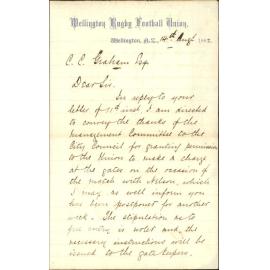 Wellington Rugby Football Union,
Wellington, N.Z., 14th Augt 1882
C. C. Graham Esq
Dear Sir.
In reply to your
letter of 11th inst, I am directed
to convey the thanks of the
Management Committee to the
City Council for granting permission
to the Union to make a charge
at the gates on the occasion of
the match with Nelson, which
I may as well inform you
has been postponed for another
week. The stipulation as to
free entry is noted and the
necessary instructions will be
issued to the gate keepers.